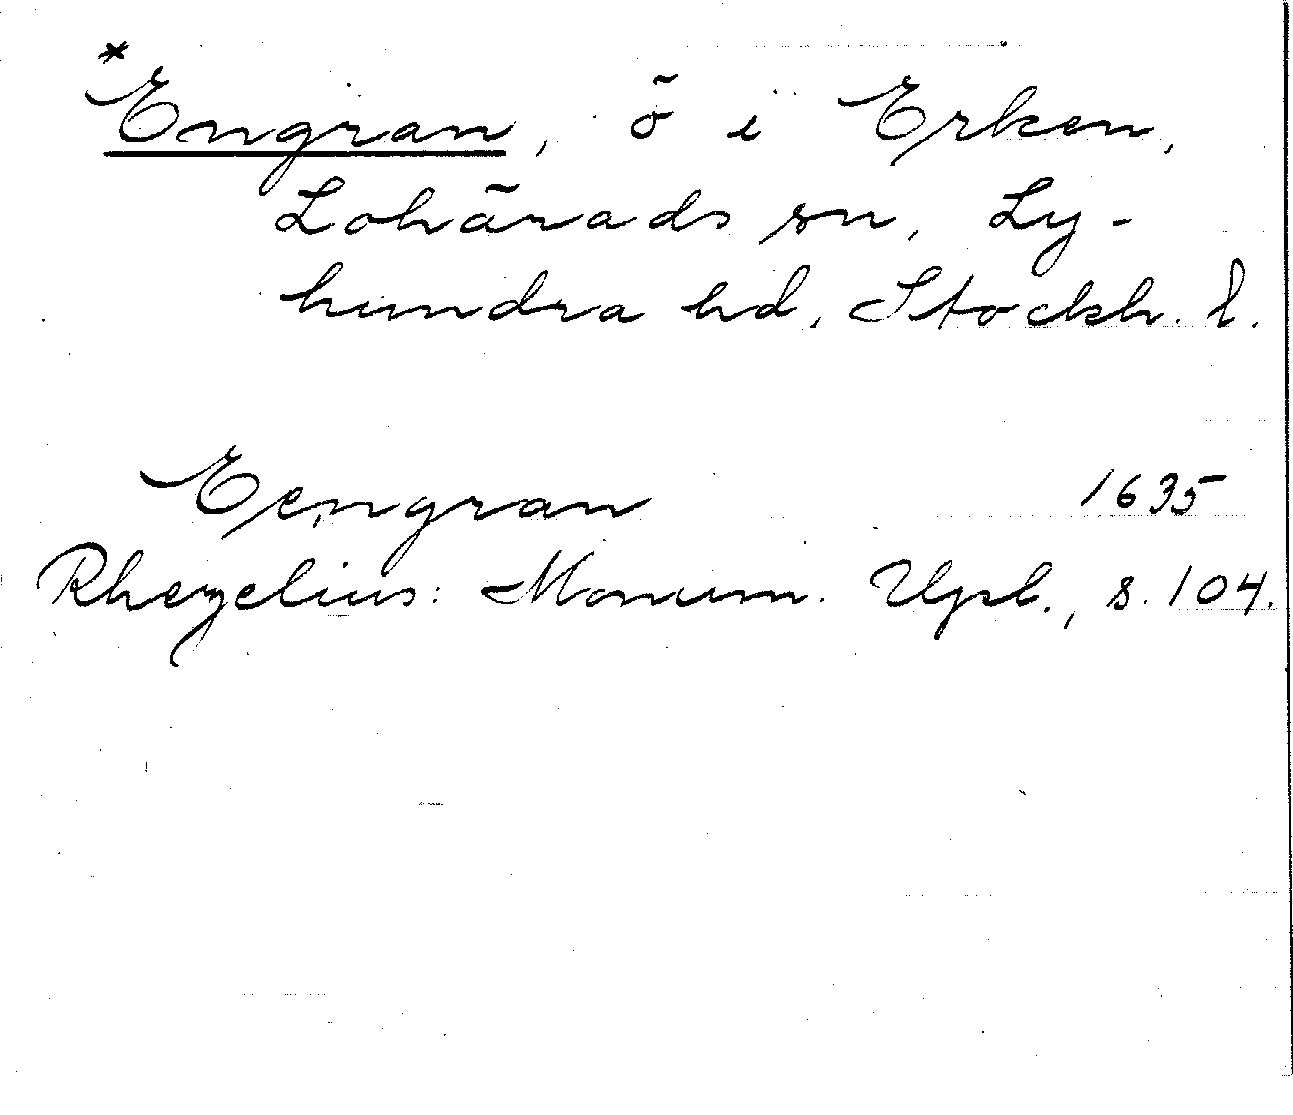 *Engran, ö i Erken,
Lohärads sn, Ly-
hundra hd, Stockh. l.
Eengran 1635
Rhezelius: Monum. Upl., s. 104.